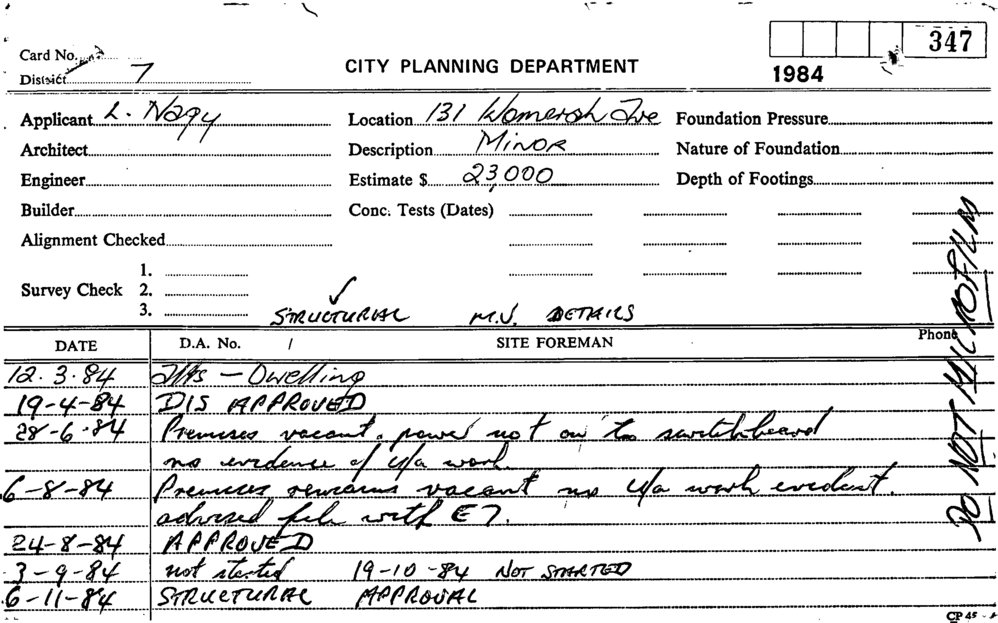 347
Card No.
District 7
CITY PLANNING DEPARTMENT
1984
Applicant L. Nagy Location 131 Ave Foundation Pressure
Architect Description MINOR Nature of Foundation
Engineer Estimate $ 23,000 Depth of Footings
Builder Conc. Tests (Dates)
Alignment Checked
1.
Survey Check 2.
3.
✓
STRUCTURAL M.V. DETAILS
DO NOT MICROFILM
DATE D.A. No. / SITE FOREMAN Phone
12.3.84 Alts - Dwelling
19-4-84 DISAPPROVED
28-6-84 Premises vacant. power not on to switchboard
no evidence of u/a work.
6-8-84 Premises remains vacant no u/a work evident.
advised file with E7.
24-8-84 APPROVED
3-9-84 not started 19-10-84 NOT STARTED
6-11-84 STRUCTURAL APPROVAL
CP 45